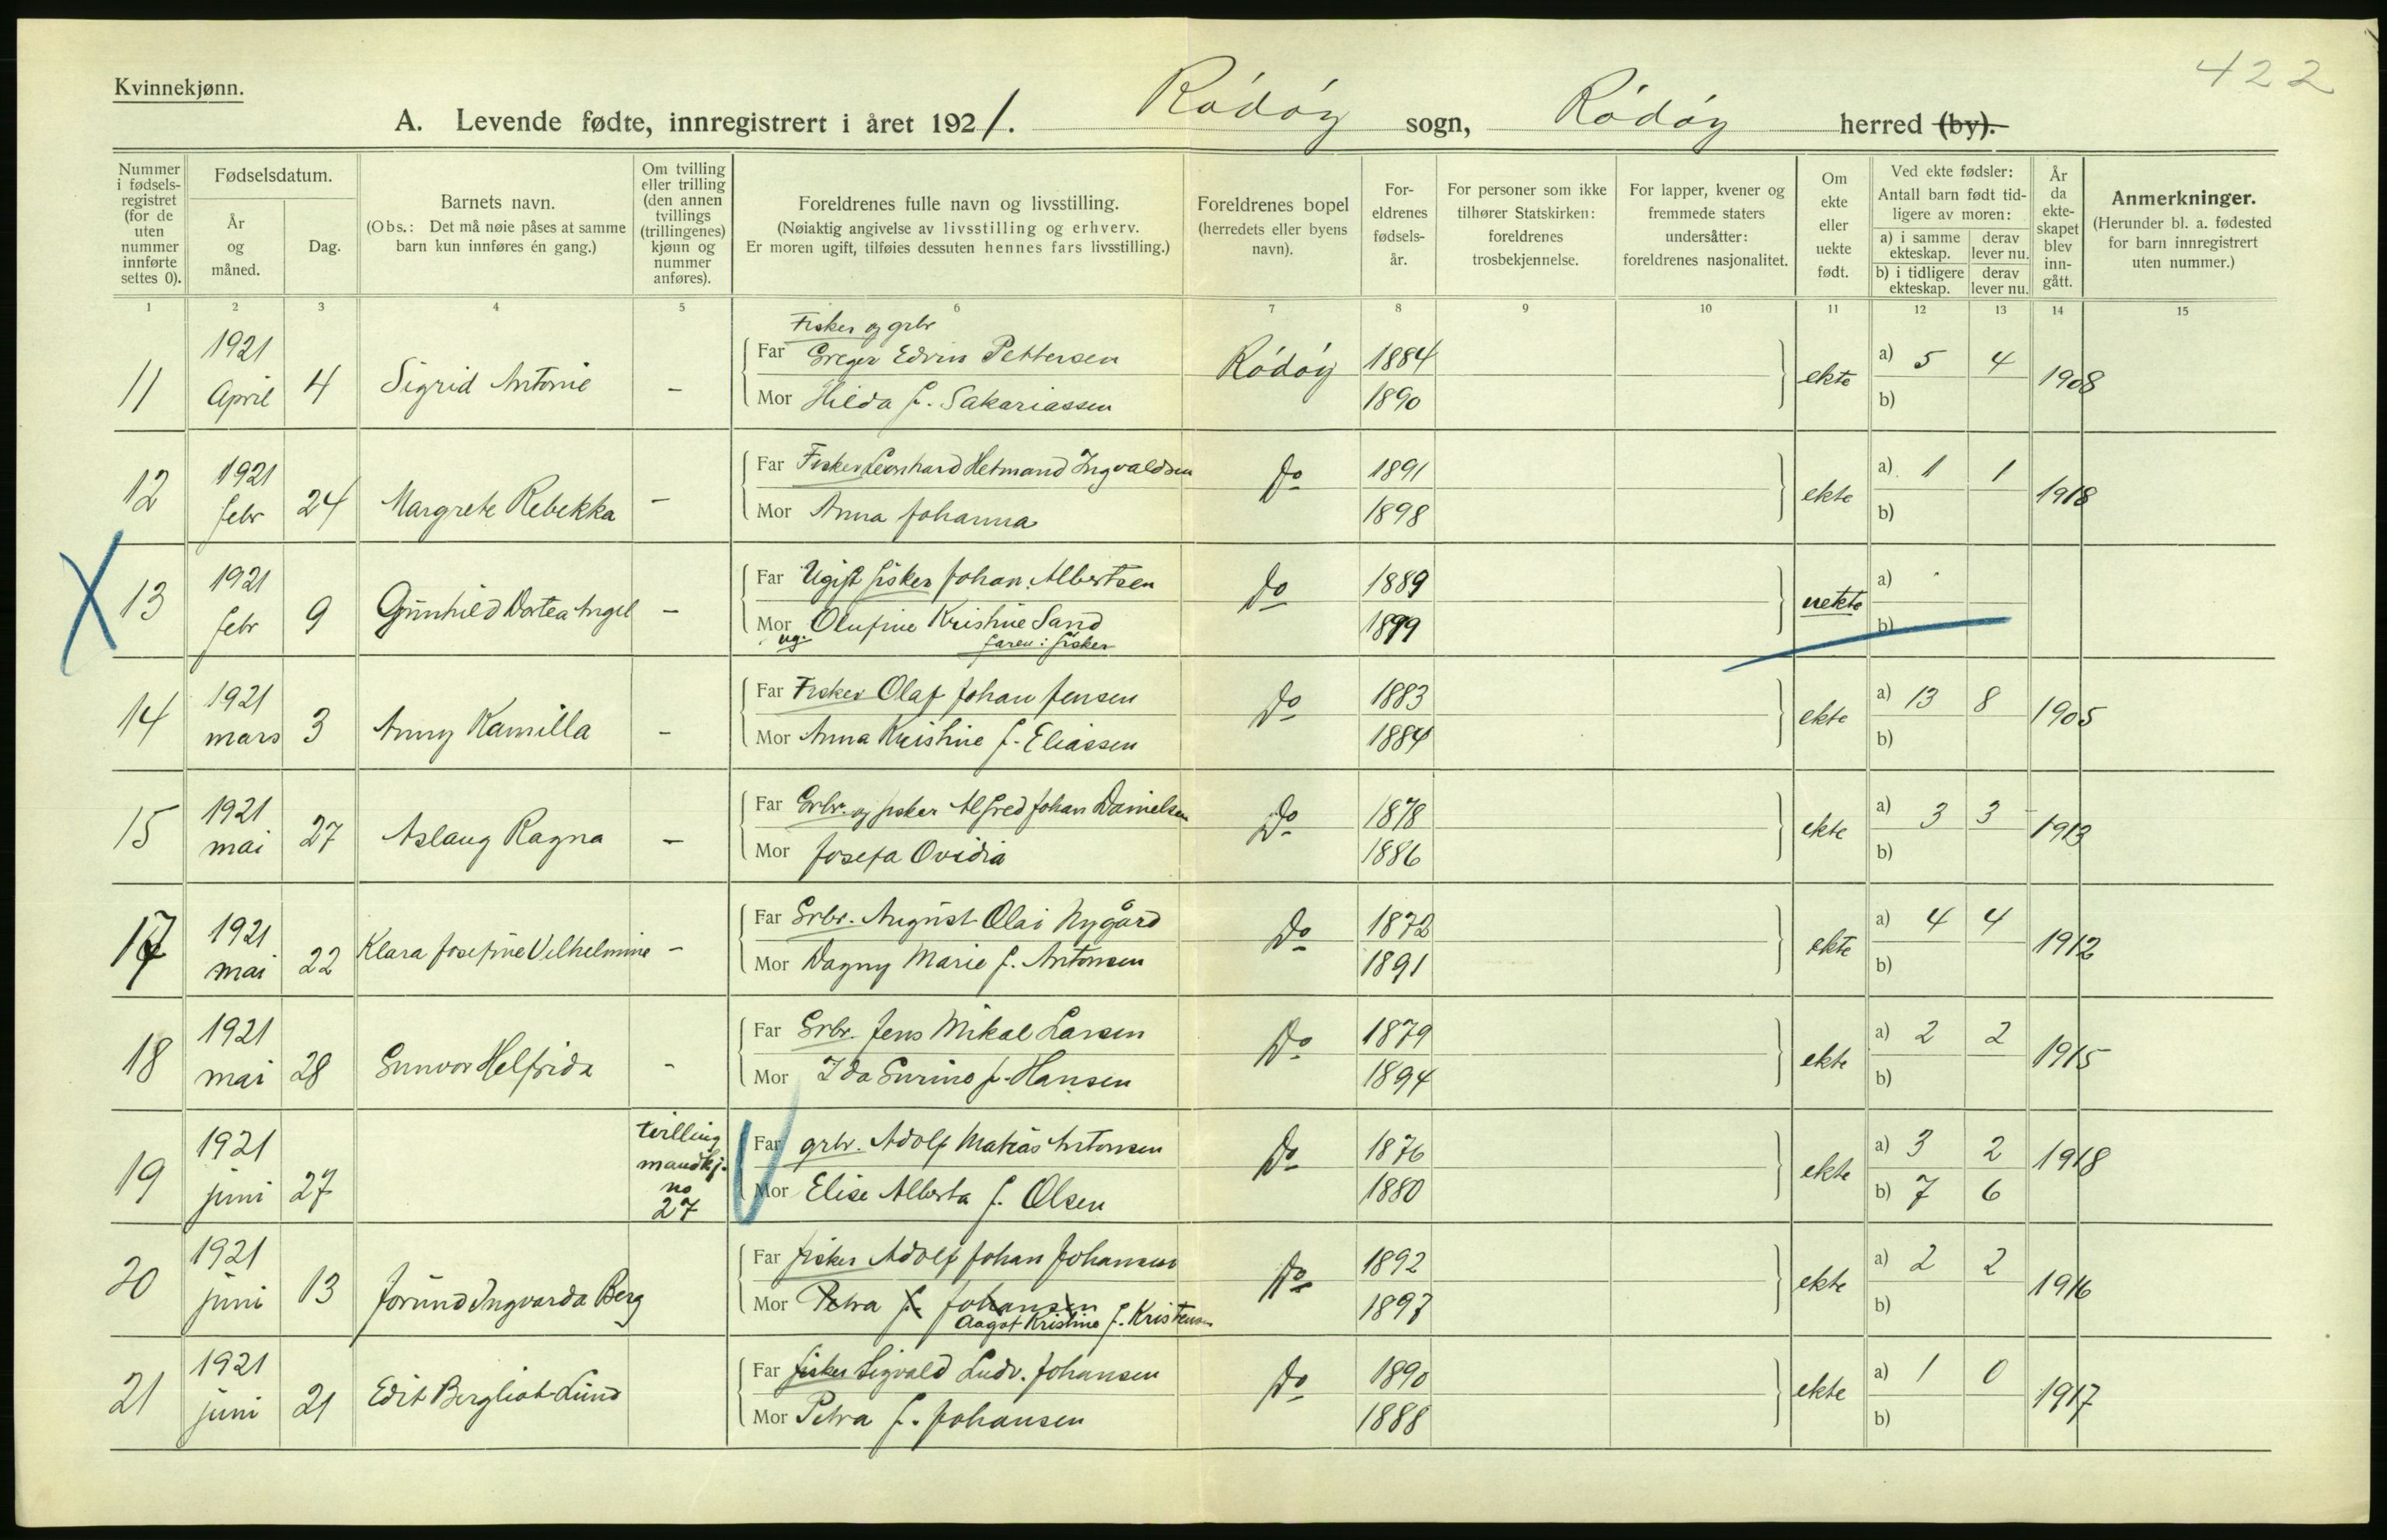 422
Kvinnekjønn.
A. Levende fødte, innregistrert i året 1921. Rødøy sogn, Rødøy herred (by).
Nummer i fødsels-registret (for de uten nummer innførte settes 0).
Fødselsdatum.
År og måned.
Dag.
Barnets navn.
(Obs.: Det må nøie påses at samme barn kun innføres én gang.)
Om tvilling eller trilling (den annen tvillings (trillingenes) kjønn og nummer anføres).
Foreldrenes fulle navn og livsstilling.
(Nøiaktig angivelse av livsstilling og erhverv.
Er moren ugift, tilføies dessuten hennes fars livsstilling.)
Foreldrenes bopel (herredets eller byens navn).
For-eldrenes fødsels-år.
For personer som ikke tilhører Statskirken: foreldrenes trosbekjennelse.
For lapper, kvener og fremmede staters undersåtter: foreldrenes nasjonalitet.
Om ekte eller uekte født.
Ved ekte fødsler:
Antall barn født tid-ligere av moren:
a) i samme ekteskap. derav lever nu.
b) i tidligere ekteskap. derav lever nu.
År da ekte-skapet blev inn-gått.
Anmerkninger.
(Herunder bl. a. fødested for barn innregistrert uten nummer.)
1 2 3 4 5 6 7 8 9 10 11 12 13 14 15
Fisker og grbr
11 1921 April 4 Sigrid Antonie - Far Greger Edvin Pettersen Rødøy 1884 ekte a) 5 4 1908
Mor Hilda f. Sakariassen 1890 b)
12 1921 febr 24 Margrete Rebekka - Far Fisker Leonhard Hetmand Ingvaldsen Do 1891 ekte a) 1 1 1918
Mor Anna Johanna 1898 b)
13 1921 febr 9 Gunhild Dortea Angel - Far Ugift fisker Johan Albertsen Do 1889 uekte a)
Mor Olufine Kristine Sand 1899 b)
ug. faren: fisker
14 1921 mars 3 Anny Kamilla - Far Fisker Olaf Johan Jensen Do 1883 ekte a) 13 8 1905
Mor Anna Kristine f. Eliassen 1884 b)
15 1921 mai 27 Aslaug Ragna - Far Grbr. og fisker Alfred Johan Danielsen Do 1878 ekte a) 3 3 1913
Mor Josefa Ovidia 1886 b)
17 1921 mai 22 Klara Josefine Vilhelmine - Far Grbr. August Olai Nygård Do 1872 ekte a) 4 4 1912
Mor Dagny Marie f. Antonsen 1891 b)
18 1921 mai 28 Gunvor Helfrida - Far Grbr. Jens Mikal Larsen Do 1879 ekte a) 2 2 1915
Mor Ida Gurine f. Hansen 1894 b)
19 1921 juni 27 tvilling mandkj. no 27 Far grbr. Adolf Matias Antonsen Do 1876 ekte a) 3 2 1918
Mor Elise Alberta f. Olsen 1880 b) 7 6
20 1921 juni 13 Jorund Ingvarda Berg Far fisker Adolf Johan Johansen Do 1892 ekte a) 2 2 1916
Mor Petra f. Johansen 1897 b)
Aagot Kristine f. Kristensen
21 1921 juni 21 Edit Bergliot Lund Far fisker Sigvald Ludv. Johansen Do 1890 ekte a) 1 0 1917
Mor Petra f. Johansen 1888 b)